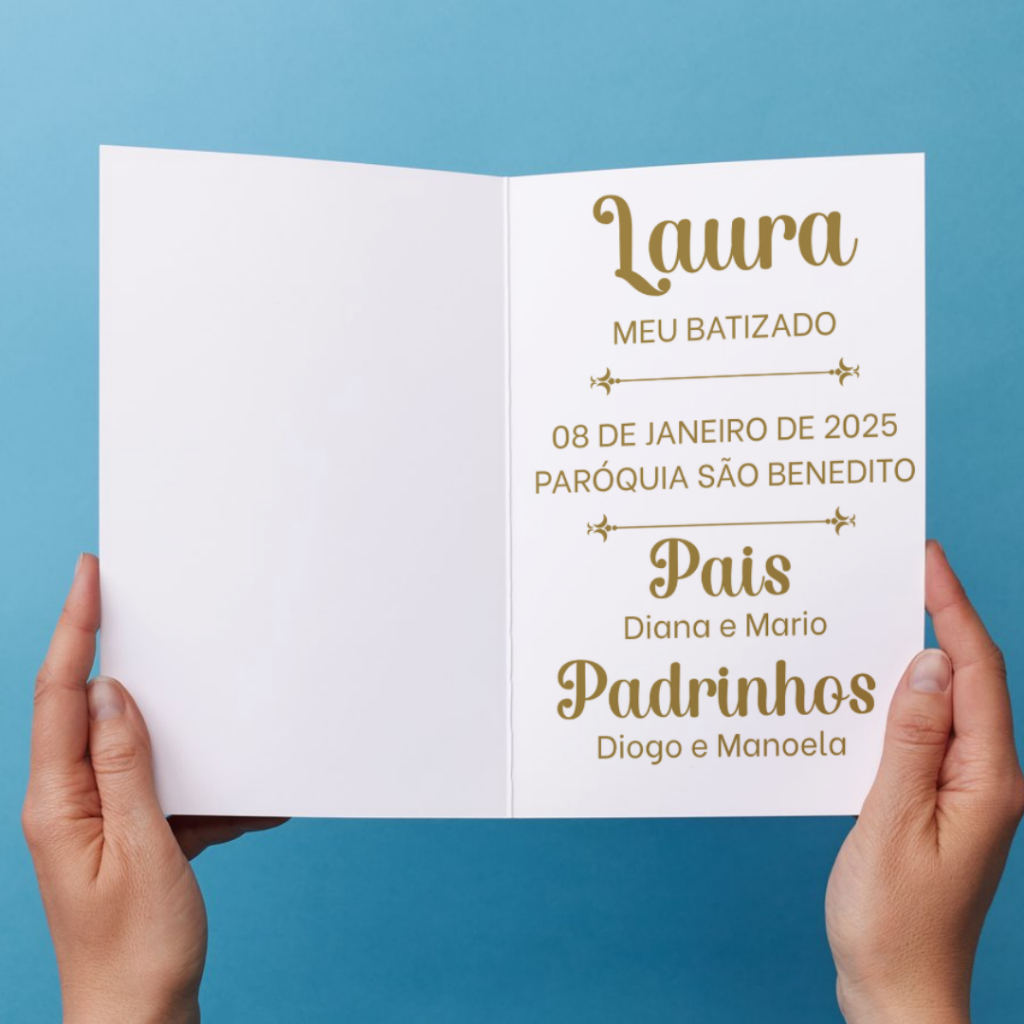 Laura
MEU BATIZADO
08 DE JANEIRO DE 2025
PARÓQUIA SÃO BENEDITO
Pais
Diana e Mario
Padrinhos
Diogo e Manoela